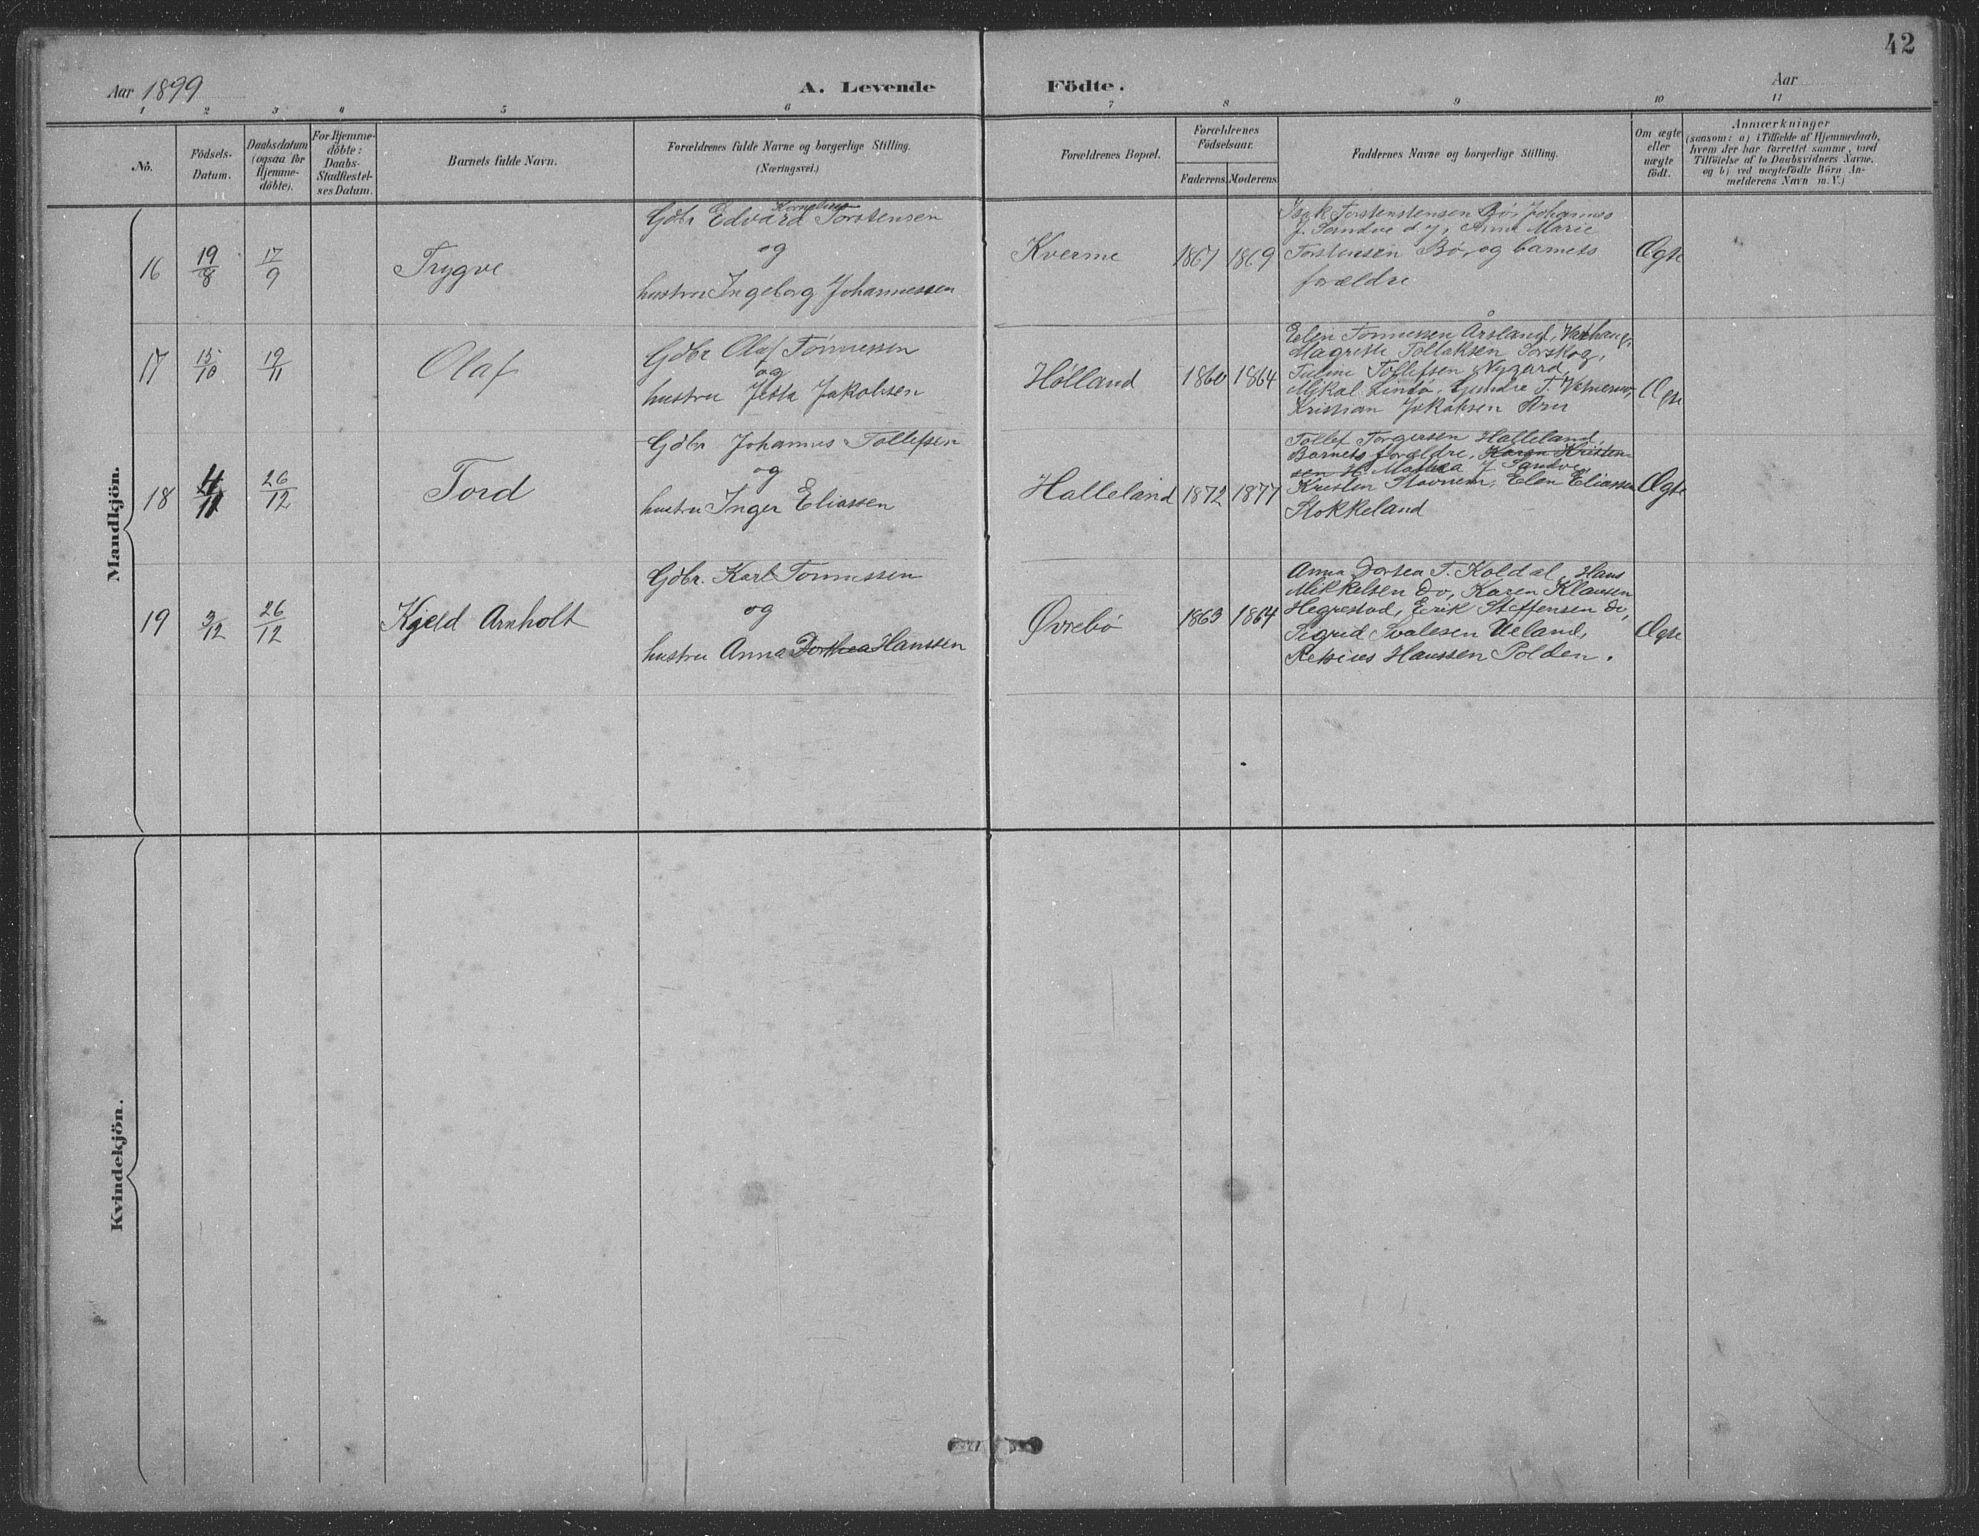 42
Aar 1899
A. Levende Födte.
Aar
1 2 3 4 5 6 7 8 9 10 11
No.
Födsels-Datum.
Daabsdatum (ogsaa for Hjemme-döbte).
For Hjemme-döbte: Daabs-Stadfæstel-ses Datum.
Barnets fulde Navn.
Forældrenes fulde Navne og borgerlige Stilling.
(Næringsvei.)
Forældrenes Bopæl.
Forældrenes Födselsaar.
Faderens. Moderens.
Faddernes Navne og borgerlige Stilling.
Om ægte eller uægte født.
Anmærkninger
(saasom: a) i Tilfælde af Hjemmedaab,
hvem der har forrettet samme, med
Tilföielse af to Daabsvidners Navne,
og b) ved uægtefödte Börn An-
melderens Navn m. V.)
Mandkjön.
16 19/8 17/9 Trygve
Kornelius
Gdbr Edvard Torstensen
og
hustru Ingeborg Johannessen
Kverme 1867 1869
Isak Torstenstensen Bø, Johannes
J. Sandve d y, Anna Marie
Torstensen Bø, og barnets
forældre
Ægte
17 15/10 19/11 Olaf
Gdbr Olaf Tönnessen
og
hustru Jetta Jakobsen
Hölland 1860 1864
Elen Tönnessen Årsland, Varhaug,
Magrete Tollaksen Torskog,
Tollefsen Nygård,
Mykal Lindø, Gundre T.
Kristian Jakobsen
Ægte
18 4/11 26/12 Tord
Gdbr Johannes Tollefsen
og
hustru Inger Eliassen
Halleland 1872 1877
Tollef Torgersen Halleland,
Barnets forældre, Karen Kristen-
sen H. J. Sandve,
Kristen Stavnem, Elen Eliassen
Stokkeland
Ægte
19 3/12 26/12 Kjeld Arnholt
Gdbr. Karl Tönnessen
og
hustru Anna Dorthea Hanssen
Øvrebö 1863 1864
Anna Dortea T. Koldal, Hans
Mikkelsen Do, Karen Klausen
Hegrestad, Erik Steffensen do,
Sigrid Svalesen Ueland,
Hanssen Polden.
Ægte
Kvindekjön.